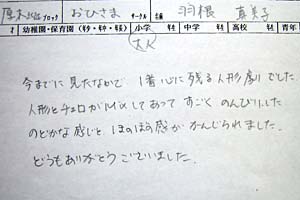 厚木 ブロック おひさま サークル 羽根 真美子
幼稚園・保育園(年少・年中・年長) 小学 年 中学 年 高校 年 青年
大人
今までに見たなかで 1番心に残る人形劇でした。
人形とチェロがMixしてあって すごく のんびりした
のどかな感じと ほのぼの感が かんじられました。
どうもありがとうございました。